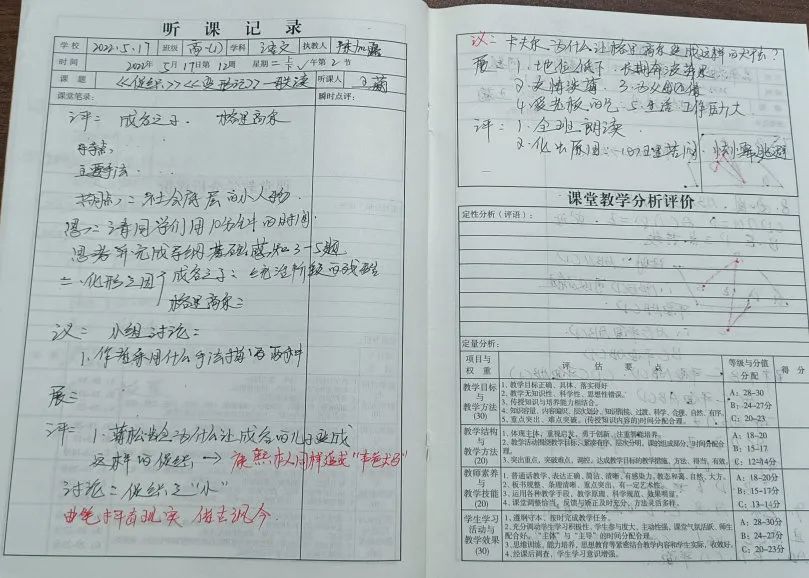 听课记录
学校 2022.5.17 班级 高一(1) 学科 语文 执教人
时间 2022年5月17日第12周 星期二 上下午第2节
课题 《促织》《变形记》联读 听课人 王
课堂笔录: 瞬时点评:
评: 成名之子. 格里高尔
导导点:
主要手法:
共同点: 二、社会底层的小人物.
思: 请同学们用10分钟的时间.
思考并完成导纲基础感知3-5题
二. 化形之因 成名之子: 统治阶级的残酷
格里高尔:
议: 小组讨论:
1. 作者采用什么手法描写
展:
评: 1. 蒲松龄为什么让成名的儿子变成
这样的促织 →
讨论: 促织之“小”
现实
议: 卡夫卡为什么让格里高尔变成这样的大虫?
展 1. 地位低下. 长期
2. 亲情淡薄 3. 为父母还债
4. 受老板的气. 5. 生活工作压力大
评: 1. 全班朗读.
2. 化虫原因:
课堂教学分析评价
定性分析(评语):
定量分析:
项目与权重 评估要点 等级与分值分配 得分
教学目标与教学方法(30)
1、教学目标正确、具体、落实得好
2、教学无知识性、科学性、思想性错误。
3、传授知识与培养能力相结合。
4、知识容量、内容编织、层次划分、知识衔接、过渡、科学、合理、自然、有序。
5、重点突出、难点突破。(传授知识内容的)时间分配合理。
A: 28-30
B: 24-27分
C: 20-23
教学结构与教学方法(20)
1、体现主体,重视启发,勇于创新,注重智能培养。
2、教学活动围绕教学目标、紧凑有序、层次分明,课的组成部分、时间分配合理。
3、突出重点,突破难点,调控,达成教学目标的教学措施、方法,得当,有效。
A: 18-20
B: 15-17
C: 12-14分
教师素养与教学技能(20)
1、普通话教学,表达正确、简洁、清晰、有感染力,教态和蔼、自然、大方。
2、板书规整、条理清晰、重点突出、有一定艺术性。
3、运用各种教学手段,教学原理,科学规范,效果明显。
4、课堂调整恰当,反馈与矫正及时充分,方法灵活多样。
A: 18-20分
B: 15-17分
C: 13-14分
学生学习活动与教学效果(30)
1、遵纲守本、按时完成教学任务。
2、充分调动学生学习积极性,学生参与度大、主动性强,课堂气氛活跃、师生
配合好。“主体”与“主导”的时间分配合理。
3、思维训练,能力培养,思想教育等紧密结合教学内容和学生实际,收效好。
4、经课后调查,学生学习意识增强。
A: 28-30分
B: 24-27分
C: 20-23分